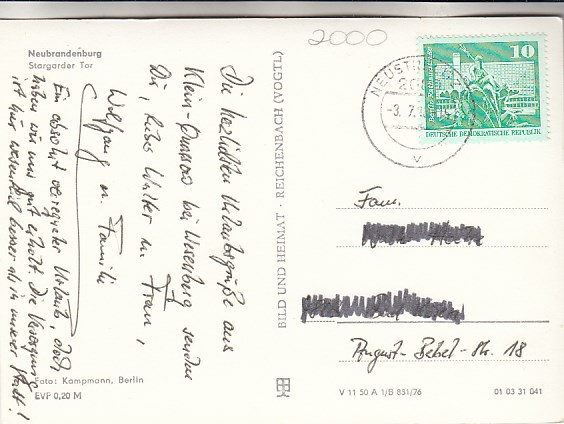 Neubrandenburg
Stargarder Tor
Die herzlichsten Urlaubsgrüße aus
Klein-Quassow bei Wesenberg senden
Dir, lieber Walter u. Frau,
Wolfgang u. Familie
Ein absolut verregneter Urlaub, doch
haben wir uns gut erholt. Die Versorgung
ist hier wesentlich besser als in unserer Stadt!
Foto: Kampmann, Berlin
EVP 0,20 M
BILD UND HEIMAT · REICHENBACH (VOGTL)
2000
NEUST
-3. 7.
10
DEUTSCHE DEMOKRATISCHE REPUBLIK
Fam.
August-Bebel-Str. 18
V 11 50 A 1/B 831/76
01 03 31 041